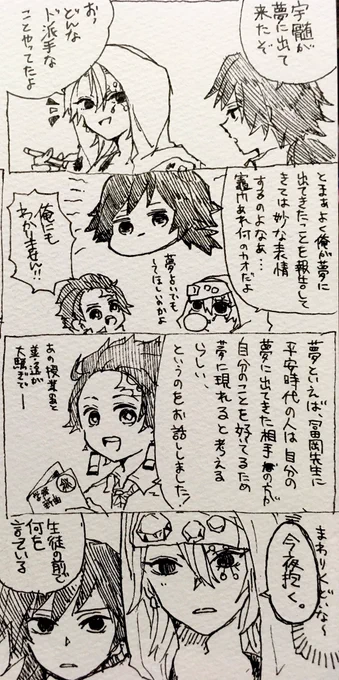 宇髄が
夢に出て
来たぞ
おっ
どんな
ド派手な
ことやってたよ
とまぁよく俺が夢に
出てきたことを報告して
きては妙な表情
するのよなぁ…
竈門あれ何のカオだよ
俺にも
わかりません!!
夢占いでも
してほしいのかよ
夢といえば、冨岡先生に
平安時代の人は自分の
夢に出てきた相手の方が
自分のことを好いてるため
夢に現れると考える
らしい、
というのをお話ししました!
あの授業
善逸が
大騒ぎで―
まわりくどいな~
今夜抱く。
生徒の前で
何を
言っている